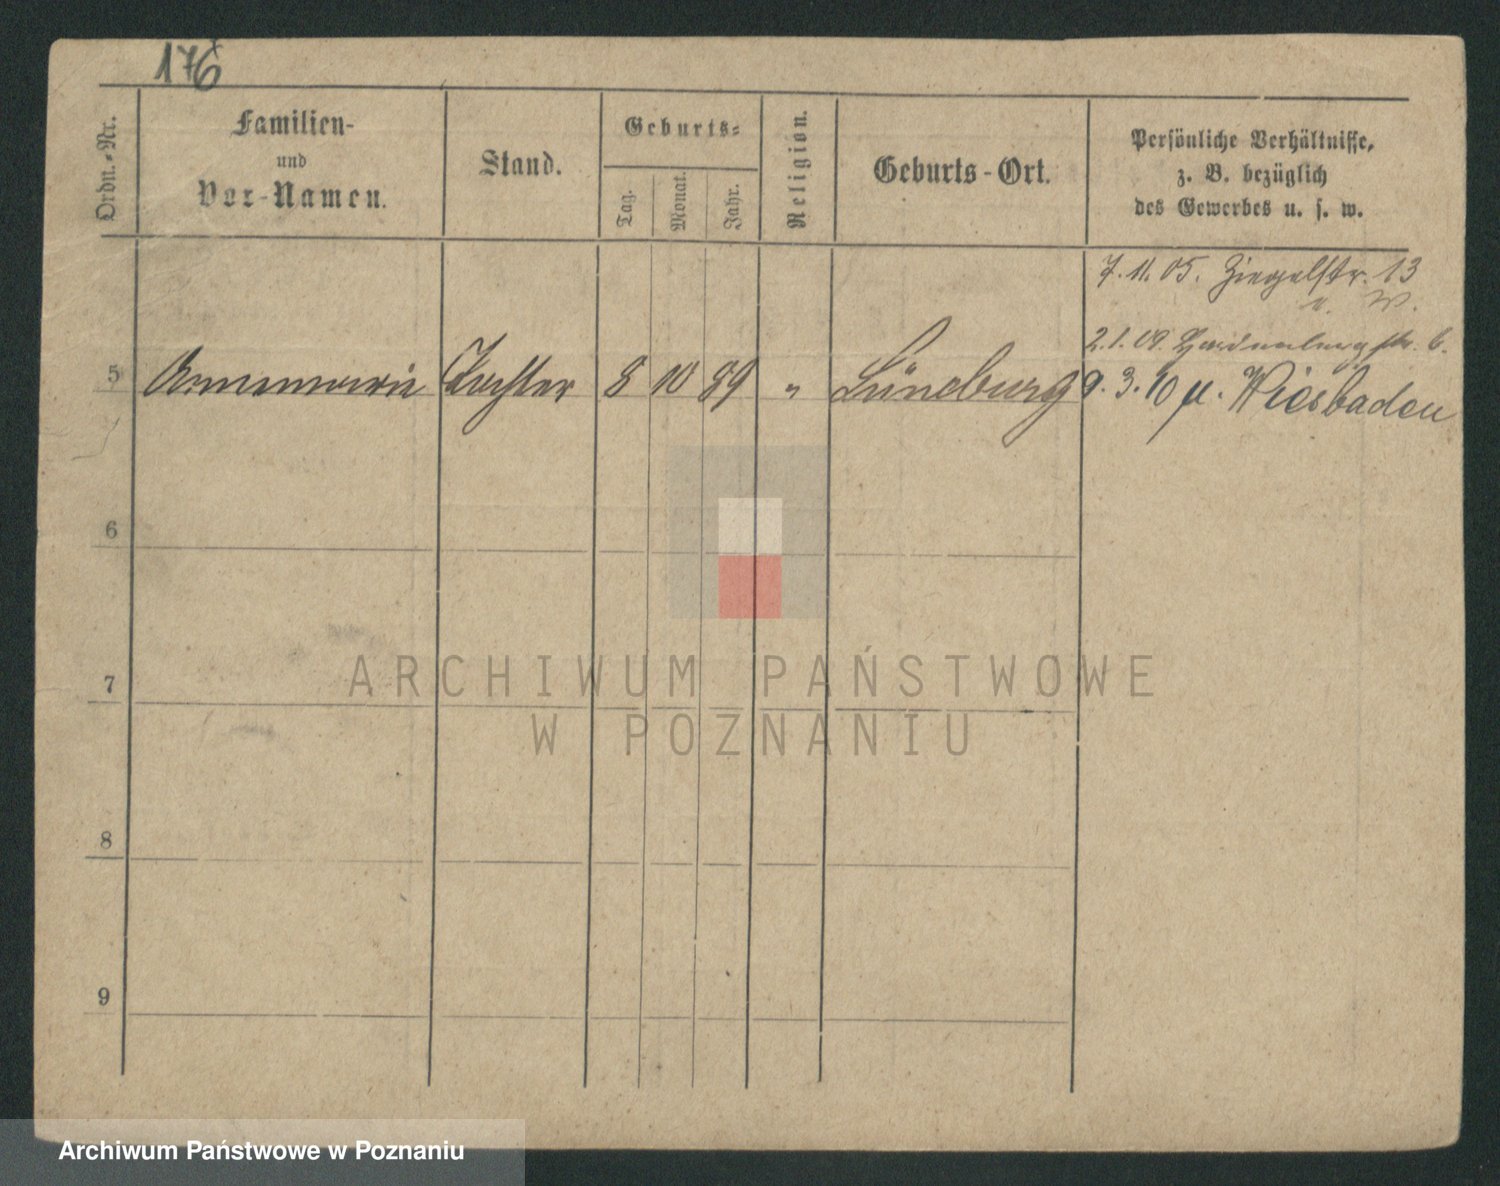 176
Ordn.-Nr.
Familien-
und
Vor-Namen.
Stand.
Geburts-
Tag.
Monat.
Jahr.
Religion.
Geburts-Ort.
Persönliche Verhältnisse,
z. B. bezüglich
des Gewerbes u. s. w.
7.11.05. Ziegelstr. 13
u. W.
2.1.09. Hardenbergstr. 6.
5 Annemarie Tochter 8 10 89 " Lüneburg 9.3.10 n. Wiesbaden
6
7
8
9
ARCHIWUM PAŃSTWOWE
W POZNANIU
Archiwum Państwowe w Poznaniu